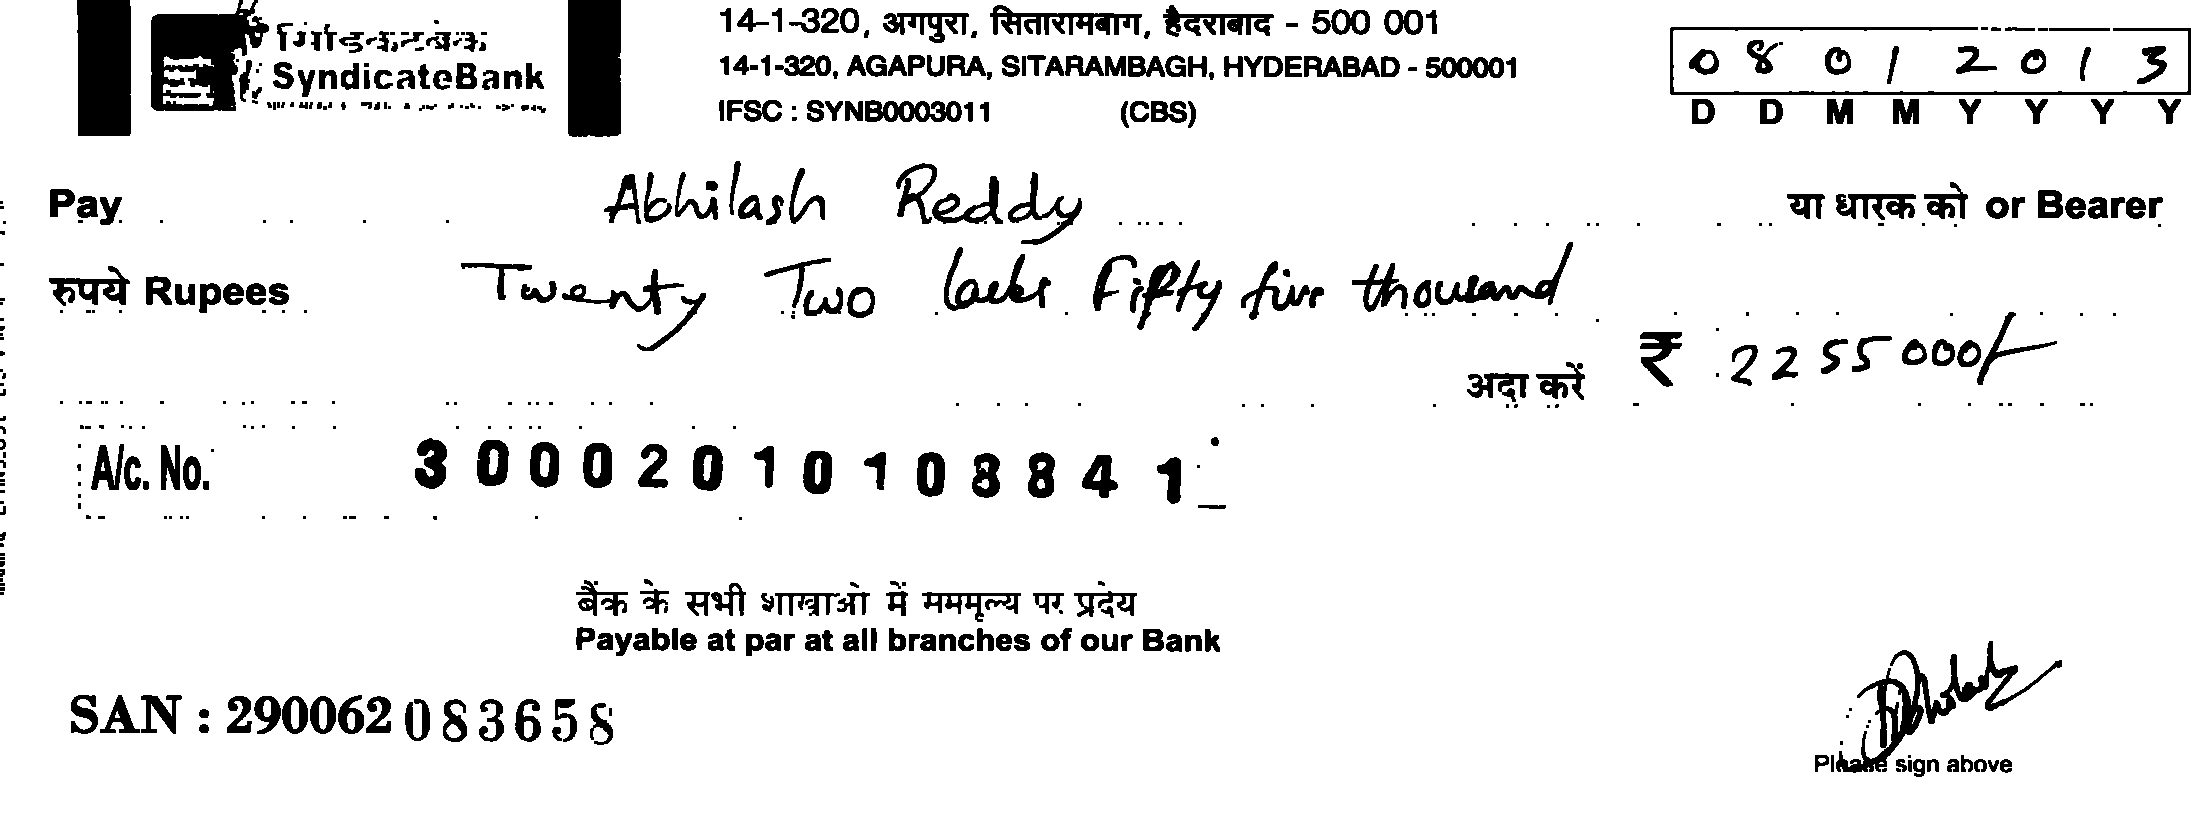 SyndicateBank
14-1-320, अगपुरा, सितारामबाग, हैदराबाद - 500 001
14-1-320, AGAPURA, SITARAMBAGH, HYDERABAD - 500001
IFSC : SYNB0003011 (CBS)
0 8 0 1 2 0 1 3
D D M M Y Y Y Y
Pay Abhilash Reddy या धारक को or Bearer
रुपये Rupees Twenty Two lacks Fifty five thousand
अदा करें ₹ 2255000/-
A/c. No. 30002010108841
बैंक के सभी शाखाओ में सममूल्य पर प्रदेय
Payable at par at all branches of our Bank
SAN : 290062083658
Abhilash
Please sign above